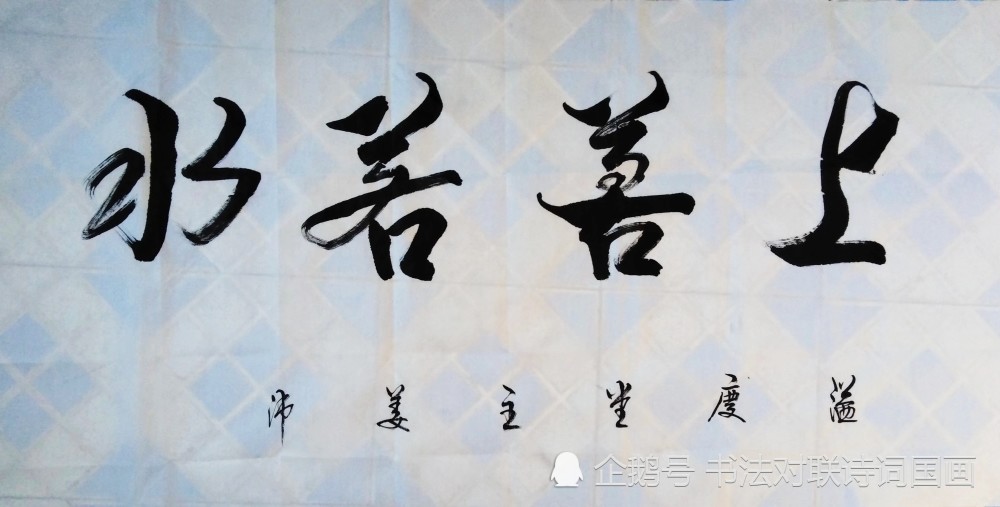 上善若水
溢度堂主姜沛
企鹅号 书法对联诗词国画